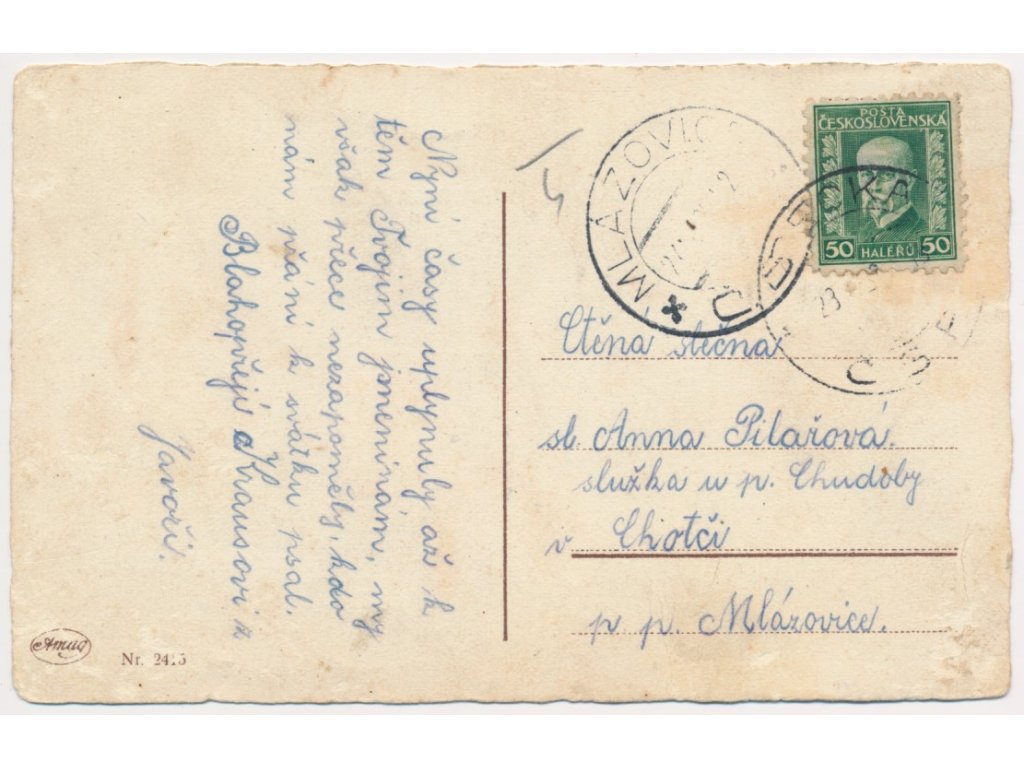 Nyní časy uplynuly, až k
těm Tvojim jmeninám, my
však přece nezapoměly, kdo
nám přání k svátku psal.
Blahopřejí a Krausovi z
Javoří.
MLÁZOVIC
POŠTA
ČESKOSLOVENSKÁ
50 HALÉŘŮ 50
23
Ctěná slečna
sl. Anna Pilařová.
služka u p. Chudoby
v Chotči
p p. Mlázovice.
Amag
Nr. 2415